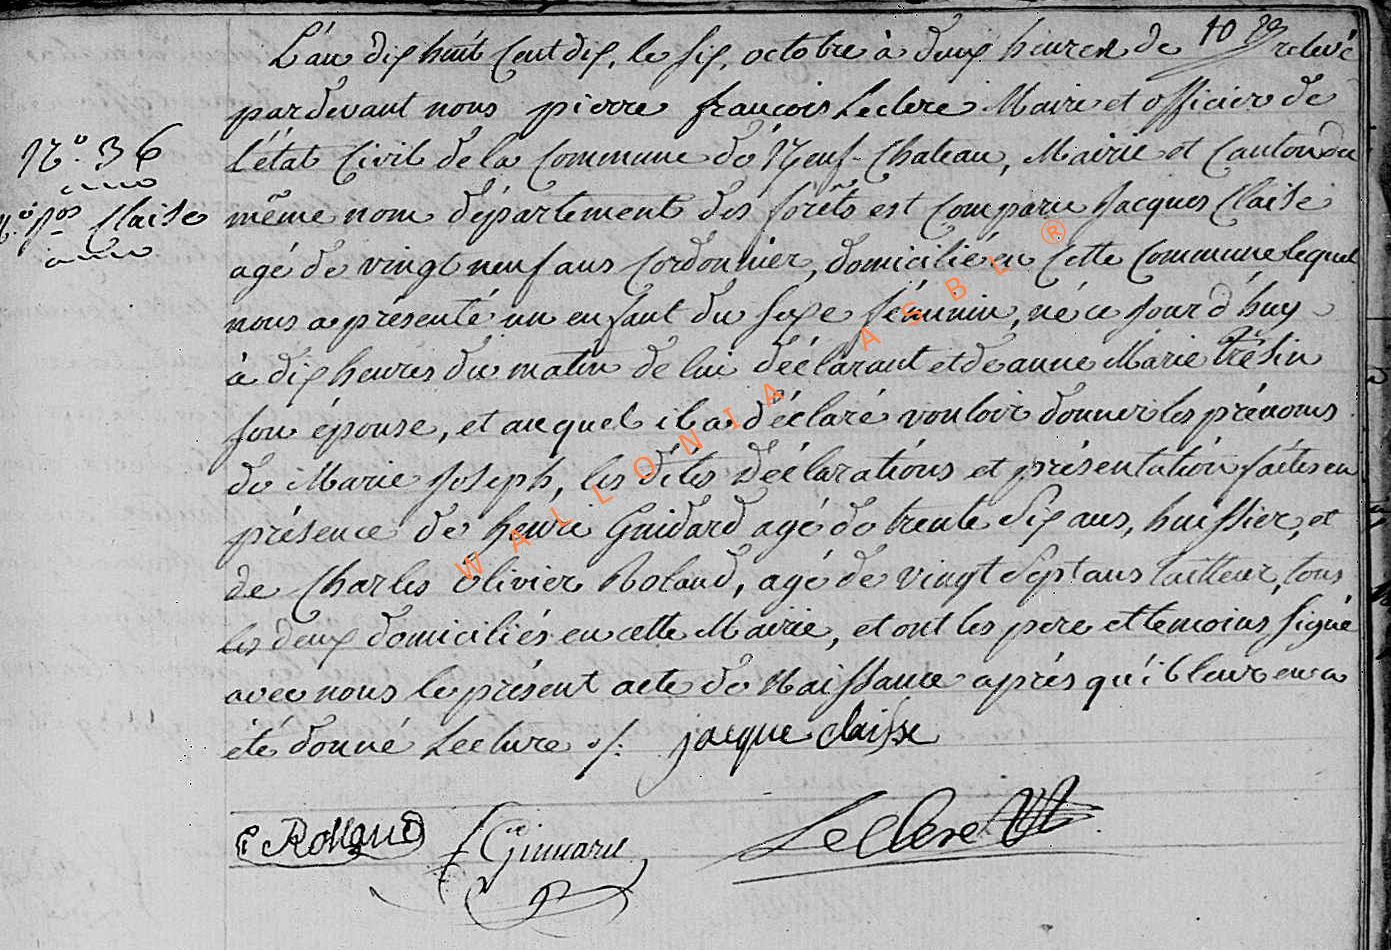 L'an dix huit Cent dix, le six, octobre à deux heures de relevé
pardevant nous pierre françois Leclere Maire et officier de
N.º 36
l'état Civil de la Commune de Neuf-Chateau, Mairie et Canton du
Claise
même nom département des forêts est Comparu Jacques Claise
agé de vingt neuf ans Cordonnier, domicilié en Cette Commune lequel
nous a présenté un enfant du sexe féminin, né ce jour d'huy
à dix heures du matin de lui déclarant et de anne Marie Trésin
son épouse, et auquel il a déclaré vouloir donner les prénoms
de Marie Joseph, les dites Déclarations et présentation faites en
présence de henri Guidard agé de trente six ans, huissier, et
de Charles olivier Roland, agé de vingt sept ans tailleur, tous
les deux domiciliés en cette Mairie, et ont les pere et temoins signé
avec nous le présent acte de Naissance après qu'il leur en a
été donné Lecture ./. jacque claisse
C Rolland Leclere
WALLONIA ASBL ®